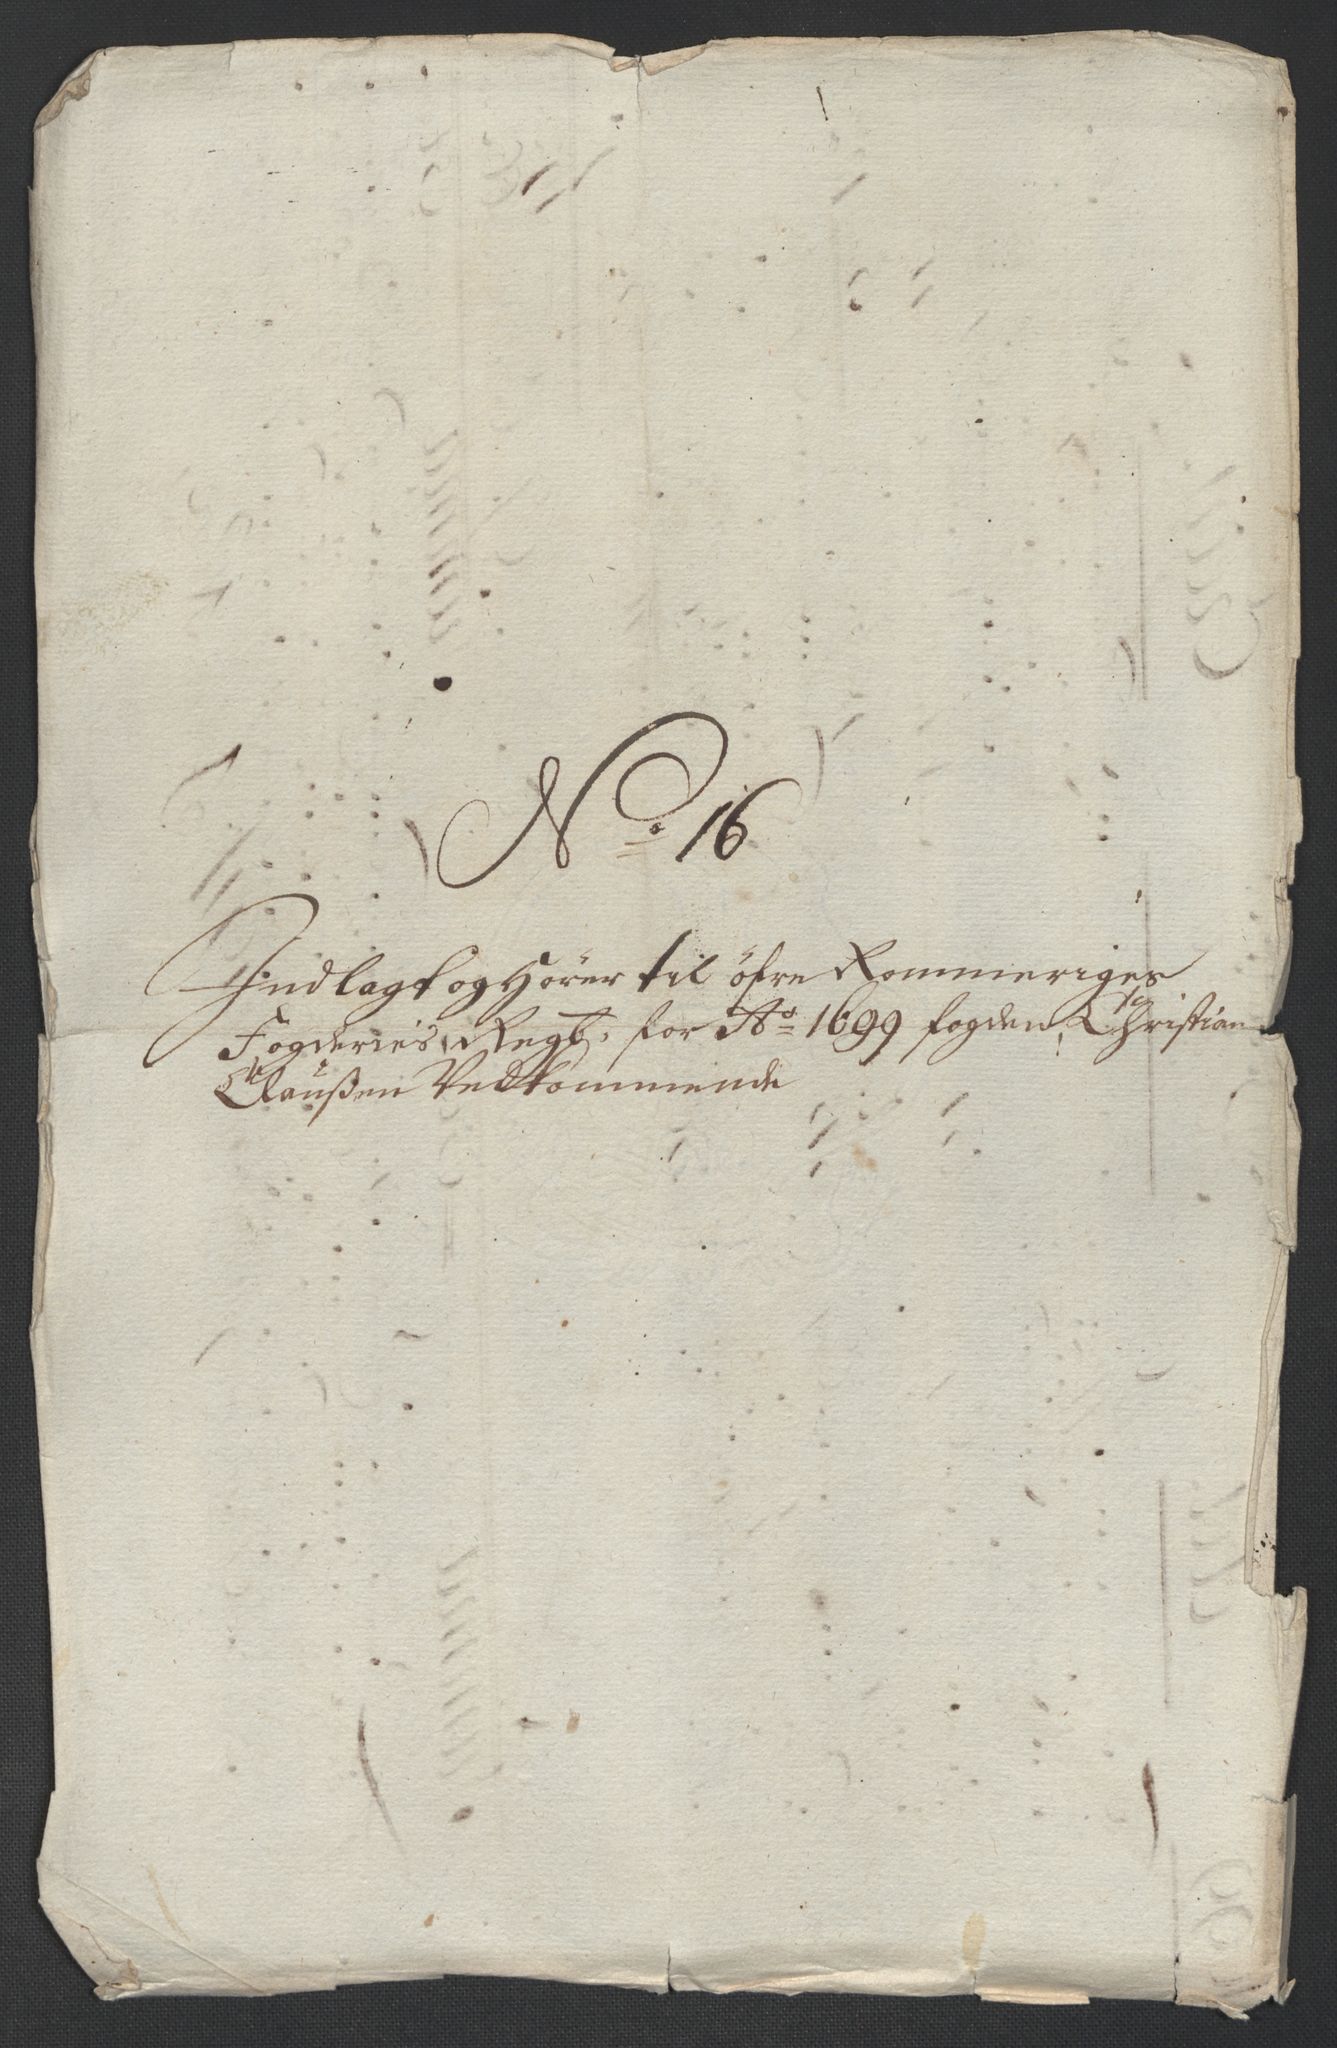 No 16
Indlagt og Hører til öfre Rommeriges
Fogderies Regb. for Ao 1699 fogden Christian
Claußen Vedkommende